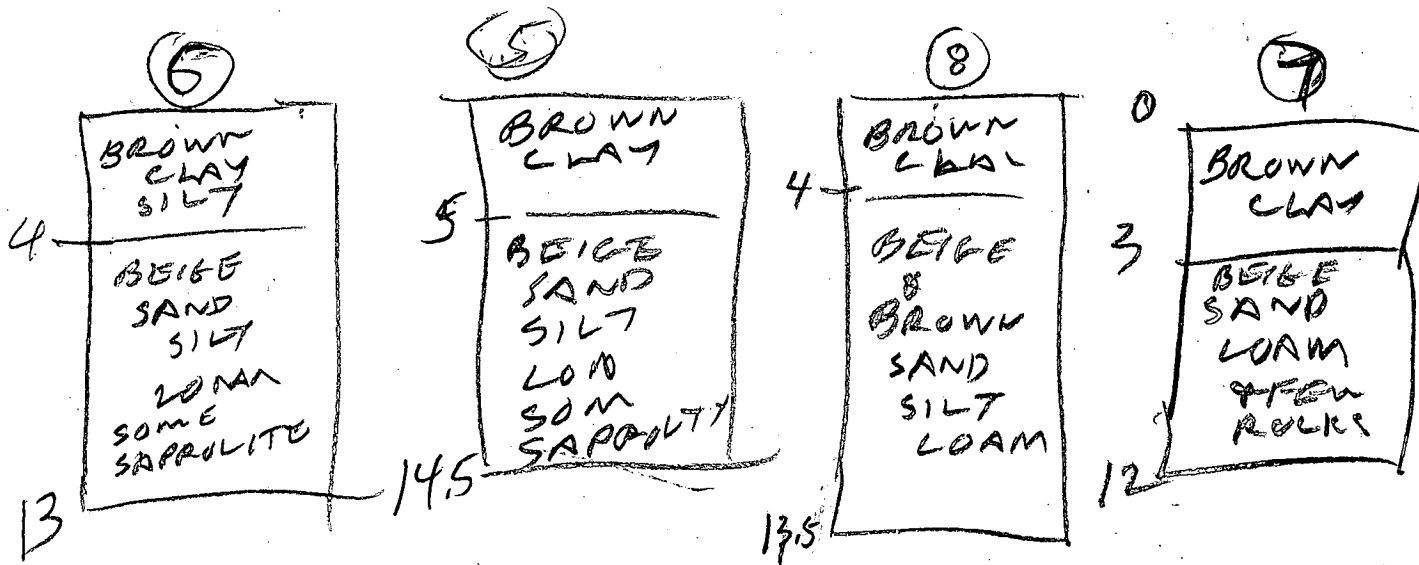 6
BROWN
CLAY
SILT
4
BEIGE
SAND
SILT
LOAM
SOME
SAPROLITE
13
5
BROWN
CLAY
5
BEIGE
SAND
SILT
SOM
14.5
8
BROWN
4
BEIGE
&
BROWN
SAND
SILT
LOAM
13.5
7
0
BROWN
CLAY
3
BEIGE
SAND
LOAM
& FEW
ROCKS
12